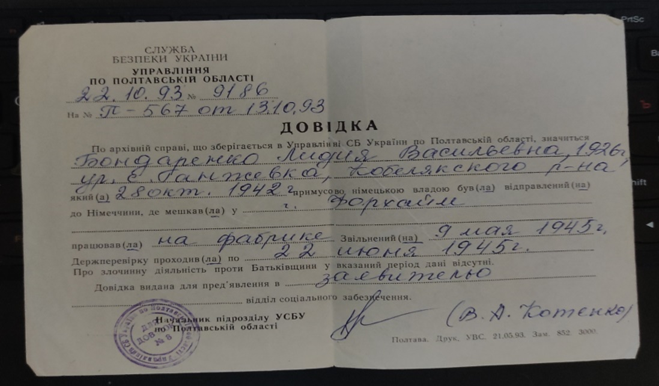 СЛУЖБА
БЕЗПЕКИ УКРАЇНИ
УПРАВЛІННЯ
ПО ПОЛТАВСЬКІЙ ОБЛАСТІ
22.10.93 № 9186
На № П-567 от 13.10.93
ДОВІДКА
По архівній справі, що зберігається в Управлінні СБ України по Полтавській області, значиться
Бондаренко Лидия Васильевна, 1926г
ур. с. Ганжевка, Кобелякского р-на,
який(а) 28 окт. 1942 г. примусово німецькою владою був(ла) відправлений(на)
до Німеччини, де мешкав(ла) у г. Форхайм
працював(ла) на фабрике Звільнений(на) 9 мая 1945г.
Держперевірку проходив(ла) по 22 июня 1945г.
Про злочинну діяльність проти Батьківщини у вказаний період дані відсутні.
Довідка видана для пред'явлення в заявителю
відділ соціального забезпечення.
Начальник підрозділу УСБУ
по Полтавській області
(В. А. Котенко)
Полтава. Друк. УВС. 21.05.93. Зам. 852. 3000.
ДЛЯ
ДОВІДОК
№ 8
PrtSc